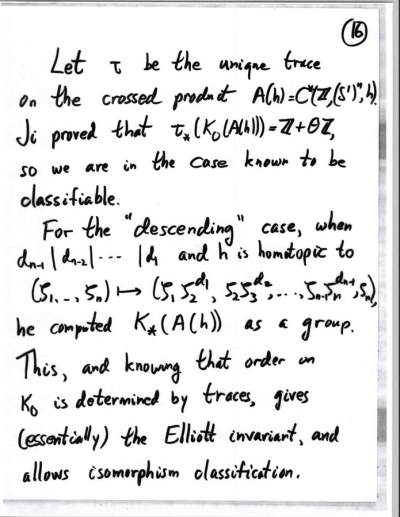 16
Let τ be the unique trace
on the crossed product A(h)=C*(ℤ,(S¹)ⁿ,h).
Ji proved that τ_*(K₀(A(h))=ℤ+θℤ,
so we are in the case known to be
classifiable.
For the "descending" case, when
d_{n-1} | d_{n-2} | ··· | d₁ and h is homotopic to
(ζ₁,..., ζₙ) ↦ (ζ₁ζ₂^{d₁}, ζ₂ζ₃^{d₂}, ..., ζ_{n-1}ζₙ^{d_{n-1}}, ζₙ),
he computed K_*(A(h)) as a group.
This, and knowing that order on
K₀ is determined by traces, gives
(essentially) the Elliott invariant, and
allows isomorphism classification.